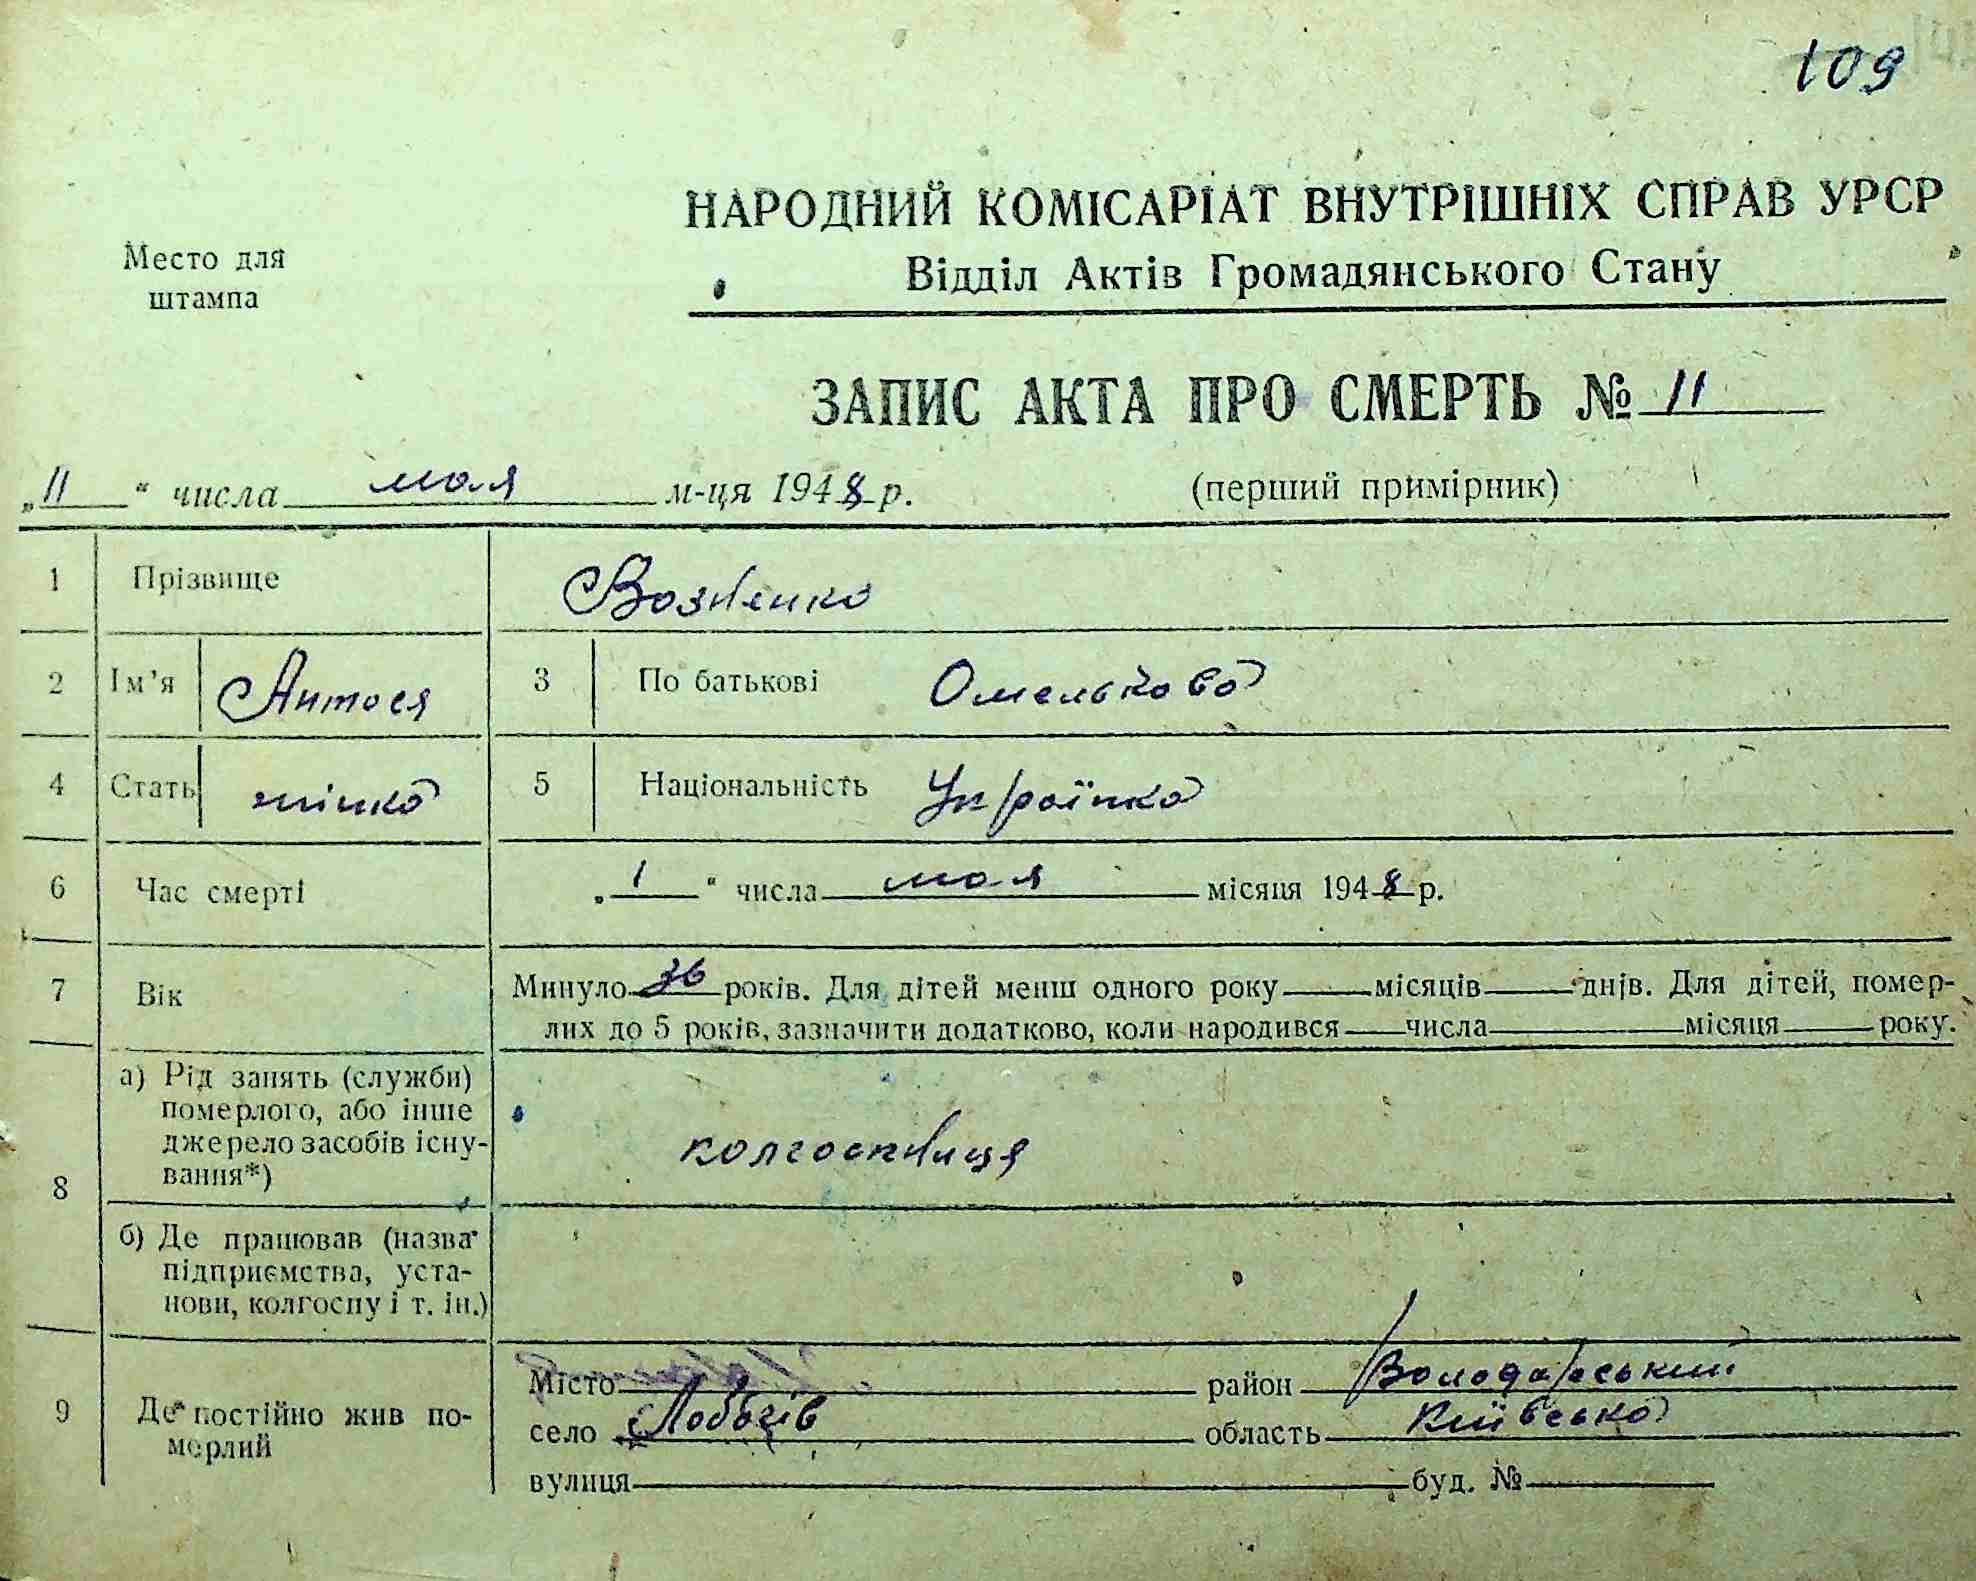 109
НАРОДНИЙ КОМІСАРІАТ ВНУТРІШНІХ СПРАВ УРСР
Место для
штампа
Відділ Актів Громадянського Стану
ЗАПИС АКТА ПРО СМЕРТЬ № 11
„11“ числа мая м-ця 1948 р. (перший примірник)
1 Прізвище Возненко
2 Ім’я Антося 3 По батькові Омелькова
4 Стать жінка 5 Національність Українка
6 Час смерті „1“ числа мая місяця 1948 р.
7 Вік Минуло 36 років. Для дітей менш одного року місяців днів. Для дітей, помер-
лих до 5 років, зазначити додатково, коли народився числа місяця року.
8 а) Рід занять (служби)
померлого, або інше
джерело засобів існу-
вання*)
колгоспниця
б) Де працював (назва
підприємства, уста-
нови, колгоспу і т. ін.)
9 Де постійно жив по-
мерлий
Місто район Володарський
село Лобачів область Київська
вулиця буд. №